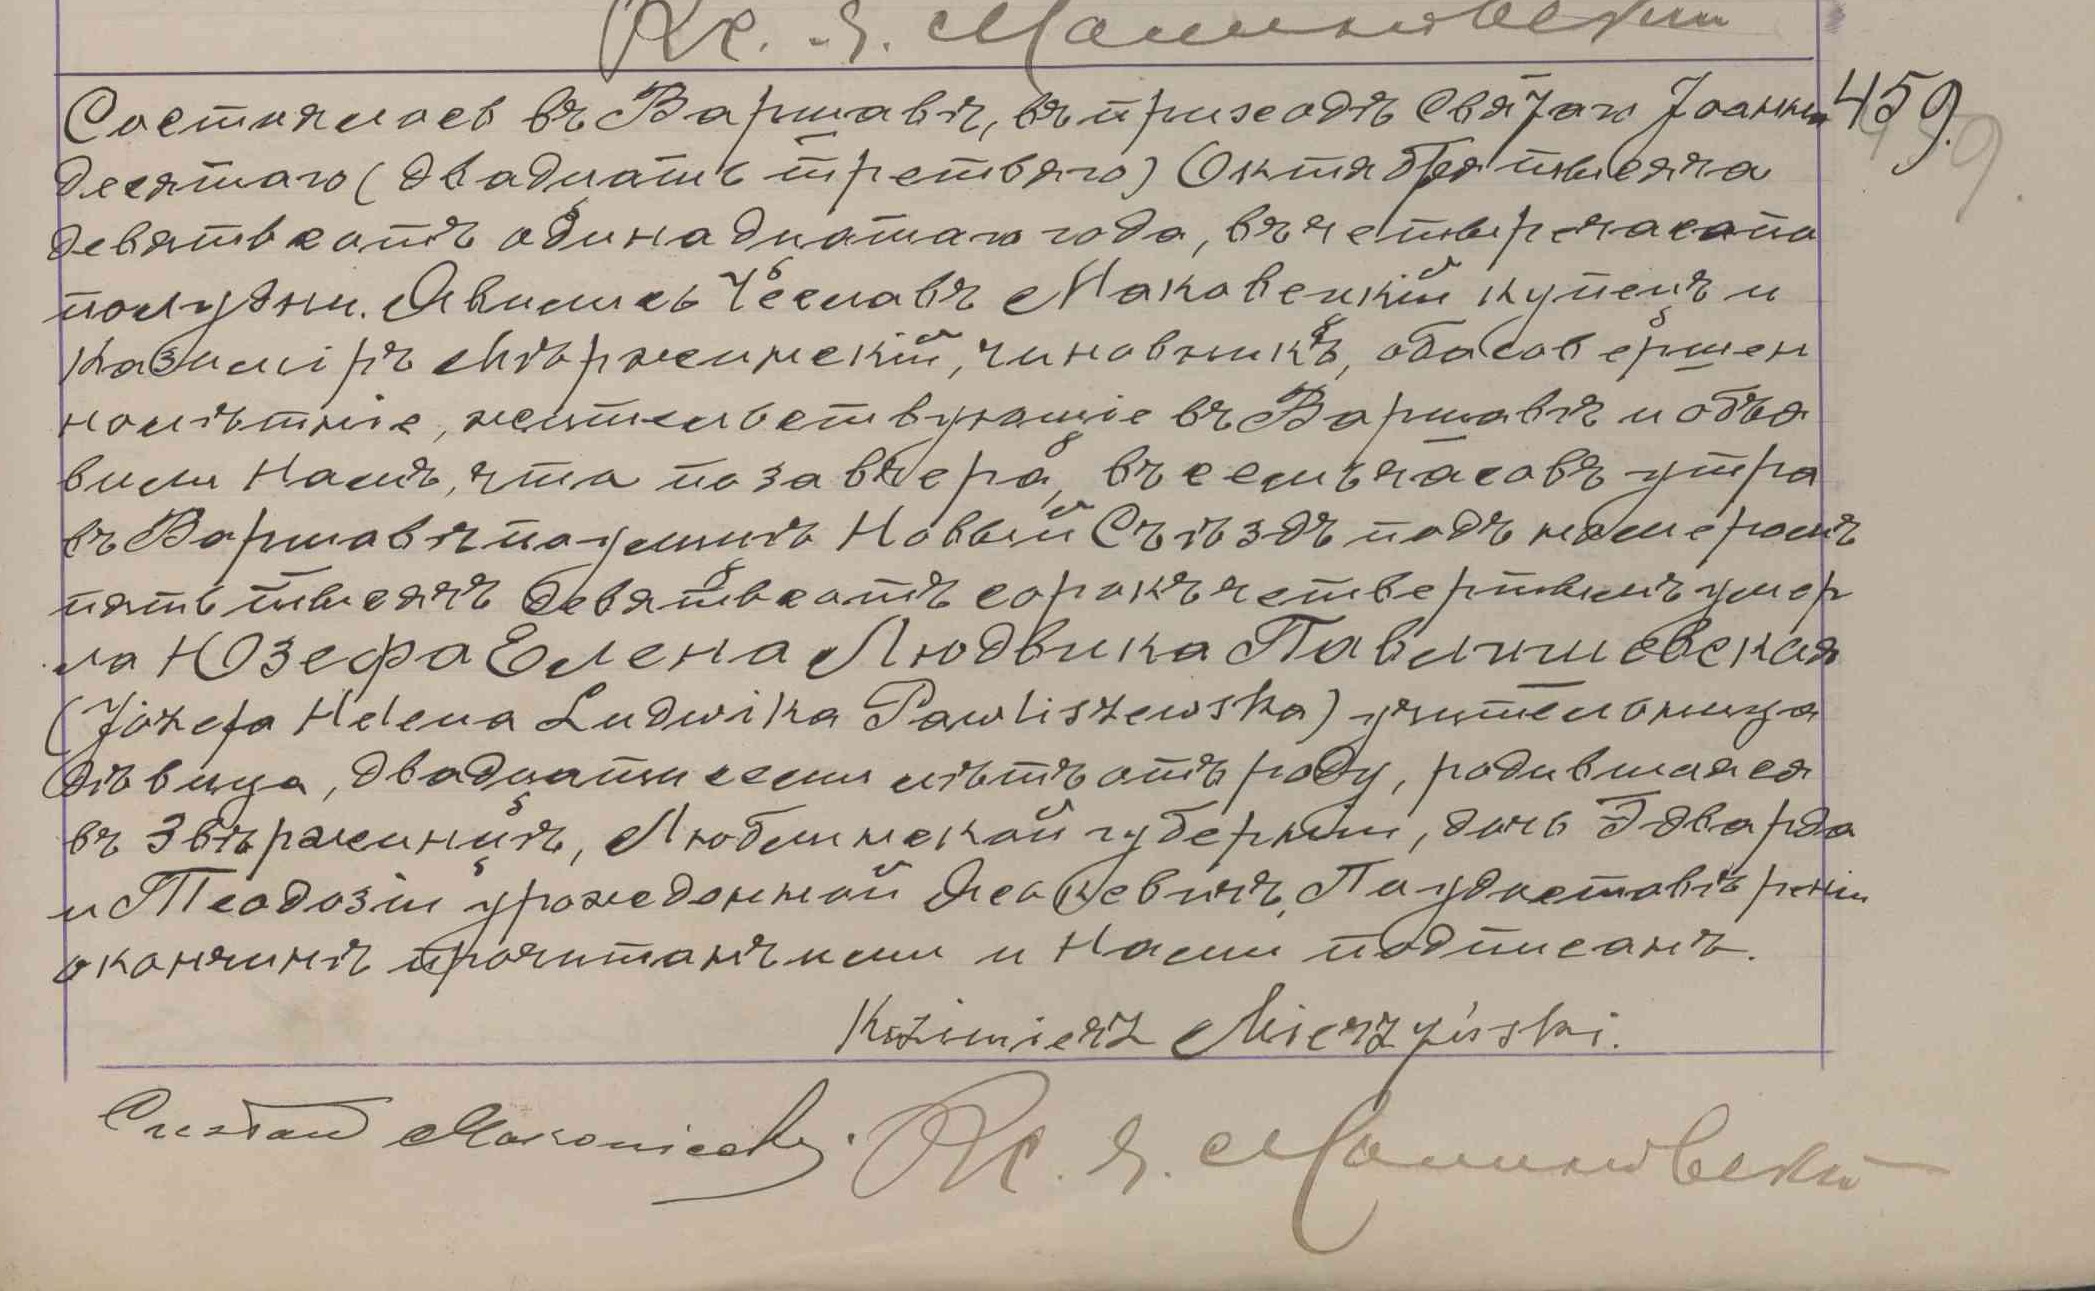 Кс. Я. Малиновскій
Состоялось въ Варшавѣ, въ приходѣ Святаго Іоанна 459.
десятаго (двадцать третьяго) Октября тысяча
девятьсотъ одинадцатаго года, въ четыре часа по
полудни. Явились Чеславъ Маковецкій купецъ и
Казиміръ Мѣржинскій, чиновникъ, оба совершен
нолѣтніе, жительствующіе въ Варшавѣ и объя
вили Намъ, что позавчера, въ семь часовъ утра
въ Варшавѣ по улицѣ Новый Съѣздъ подъ номеромъ
пять тысячъ девятьсотъ сорокъ четвертымъ умер
ла Юзефа Елена Людвика Павлишевская
(Józefa Helena Ludwika Pawliszewska) учительница
дѣвица, двадцати семи лѣтъ отъ роду, родившаяся
въ Звѣржинцѣ, Люблинской губерніи, дочь Эдварда
и Теодозіи урожденной Яськевичъ. По удостовѣреніи
о кончинѣ прочитанъ ими и Нами подписанъ.
Kazimierz Mierzyński.
Czesław Makowiecki. Кс. Я. Малиновскій